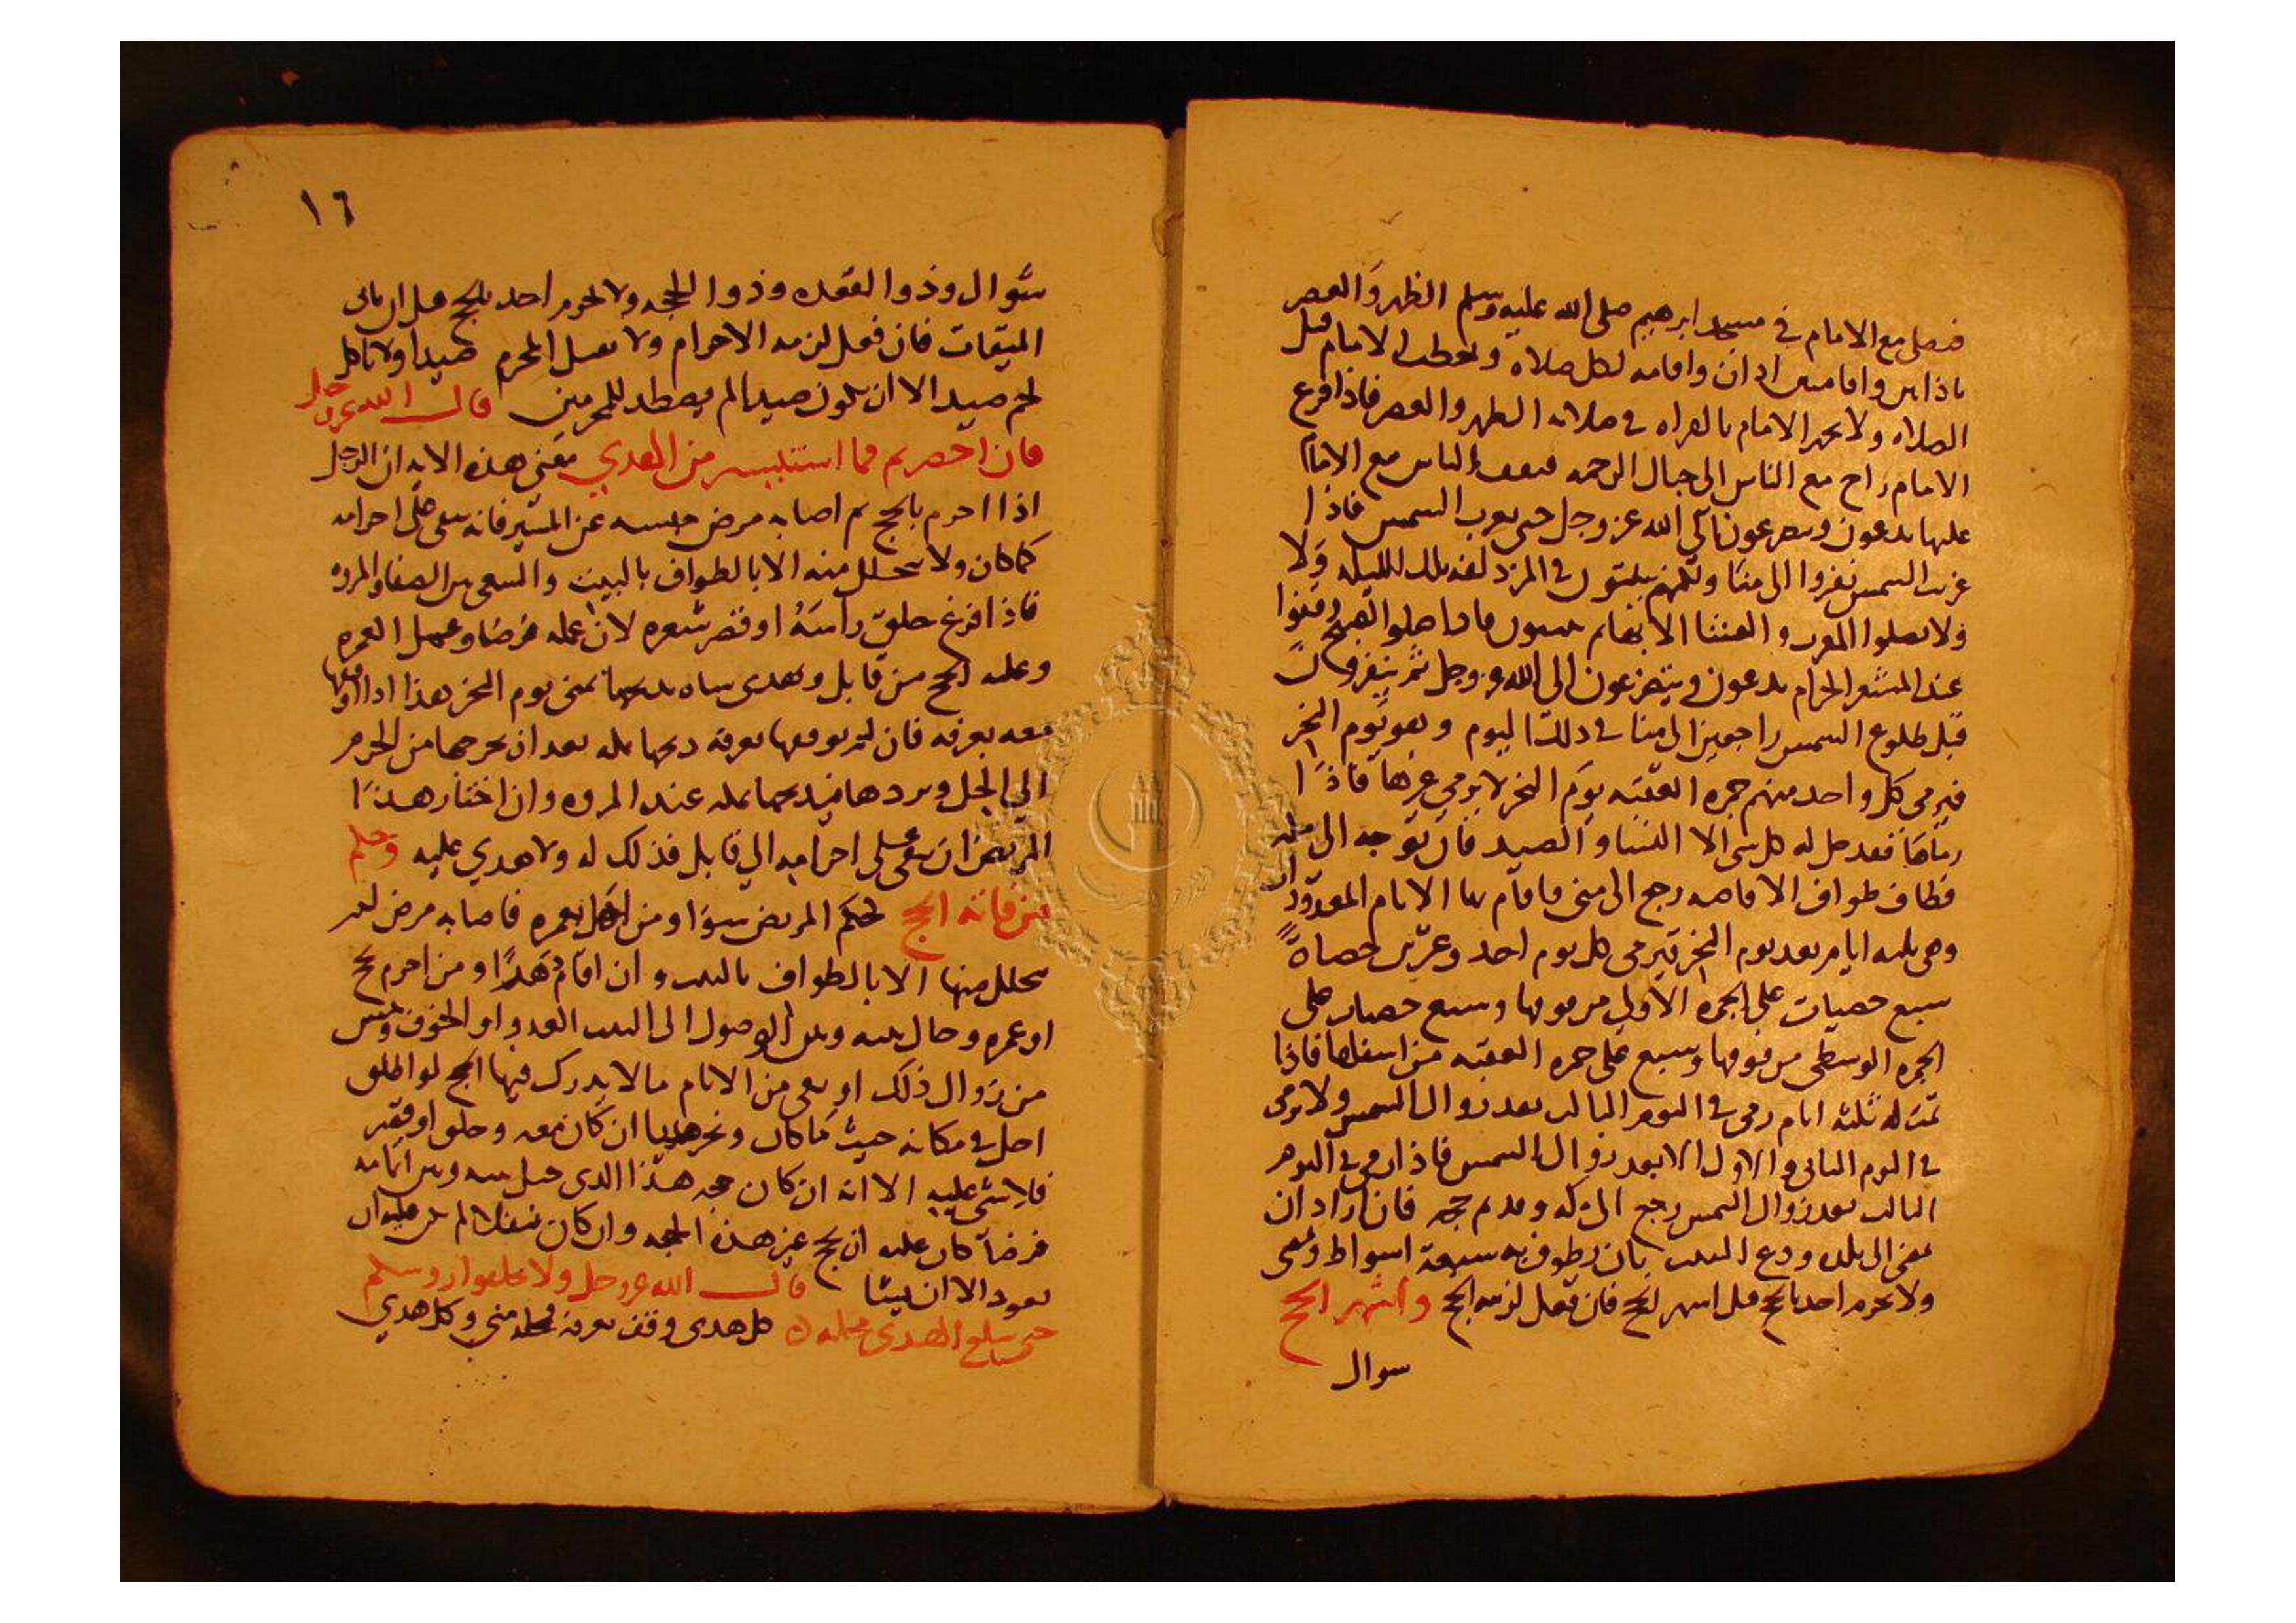 فيصلي مع الامام في مسجد ابرهيم صلى الله عليه وسلم الظهر والعصر
باذانين واقامتين اذان واقامه لكل صلاه ويخطب الامام قبل
الصلاه ولا يجهر الامام بالقراه في صلاته الظهر والعصر فاذا فرغ
الامام راح مع الناس الى جبال الرحمه فيقف الناس مع الامام
عليها يدعون ويتضرعون الى الله عز وجل حتى تغرب الشمس فاذا
غربت الشمس نفروا الى منا ولكنهم يبيتون في المزدلفه تلك الليله ولا
ولا يصلوا المغرب والعشا الا بها ثم يبيتون بها فاذا صلوا الصبح وقفوا
عند المشعر الحرام يدعون ويتضرعون الى الله عز وجل ثم ينفرون
قبل طلوع الشمس راجعين الى منا في ذلك اليوم وهو يوم النحر
فيرمي كل واحد منهم جمره العقبه يوم النحر لا يرمي غيرها فاذا
رماها فقد حل له كل شي الا النسا والصيد فان توجه الى مكه
فطاف طواف الافاضه رجع الى منى فاقام بها الايام المعدودات
وهي ثلثه ايام بعد يوم النحر يرمي كل يوم احد وعشرين حصاة
سبع حصيات على الجمره الاولى من فوقها وسبع حصيات على
الجمره الوسطى من فوقها وسبع على جمره العقبه من اسفلها فاذا
تمت له ثلثه ايام رمى في اليوم الثالث بعد زوال الشمس ولا يرمى
في اليوم الثاني والاول الا بعد زوال الشمس فاذا رمى في اليوم
الثالث بعد زوال الشمس رجع الى مكه وقد تم حجه فان اراد ان
يمضي الى بلده ودع البيت بان يطوف به سبعة اشواط ويمضي
ولا يحرم احد بالحج قبل اشهر الحج فان فعل لزمه الحج واشهر الحج
سوال
١٦
شوال وذوا القعده وذوا الحجه ولا يحرم احد بالحج قبل ان ياتى
الميقات فان فعل لزمه الاحرام ولا يقتل المحرم صيدا ولا ياكل
لحم صيد الا ان يكون صيدا لم يصطد للمحرمين قال الله عز وجل
فان احصرتم فما استيسر من الهدي معنى هذه الايه ان الرجل
اذا احرم بالحج ثم اصابه مرض حبسه عن المسير فانه يبقى على احرامه
كما كان ولا يتحلل منه الا بالطواف بالبيت والسعي بين الصفا والمروه
فاذا فرغ حلق راسه او قصر شعره لان عمله فرضا وعمل العمره
وعليه الحج من قابل ويهدي شاه يذبحها بمنى يوم النحر هذا اذا اوقفها
معه بعرفه فان لم يوقفها بعرفه ذبحها بمكه بعد ان يخرجها من الحرم
الى الحل ويردها فيذبحها بمكه عند المروه وان اختار هذا
المريض ان يبقى على احرامه الي قابل فذلك له ولا هدي عليه وحكم
من فاته الحج كحكم المريض سوا ومن اهل بعمره فاصابه مرض لم
يتحلل منها الا بالطواف بالبيت وان اقام دهرا ومن احرم بحج
او عمره وحال بينه وبين الوصول الى البيت العدو او الخوف ويئس
من زوال ذلك او بقى من الايام ما لا يدرك فيها الحج لو اطلق
احل في مكانه حيث ما كان ونحر هديا ان كان معه وحلق او قصر
فلا شي عليه الا انه ان كان حجه هذا الذي حيل بينه وبين اتمامه
فرضا كان عليه ان يحج غير هذه الحجه وان كان نفلا لم يكن عليه ان
يعود الا ان يشا قال الله عز وجل ولا تحلقوا روسكم
حتى يبلغ الهدي محله كل هدي وقف بعرفة فمحله منى وكل هدي